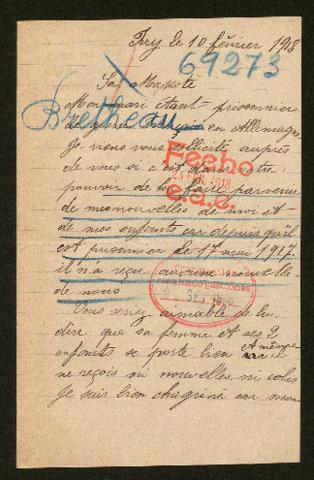 Fry, le 10 février 1918
69273
Sa Majesté
Bretheau
Mon mari étant prisonnier
de guerre français en Allemagne
Je viens vous sollicité auprès
de vous si c'est d'en votre
pouvoir de lui faire parvenir
Fecho
FEB. 1918
e.a.c.
de mes nouvelles de moi et
de mes enfants car depuis qu'il
est prisonnier le 17 mai 1917
il n'a reçu aucune nouvelle
de nous
Vous seriez aimable de lui
dire que sa femme et ses 2
enfants se porte bien
et même
ne reçois ni nouvelles ni colis
Je suis bien chagriné car mon